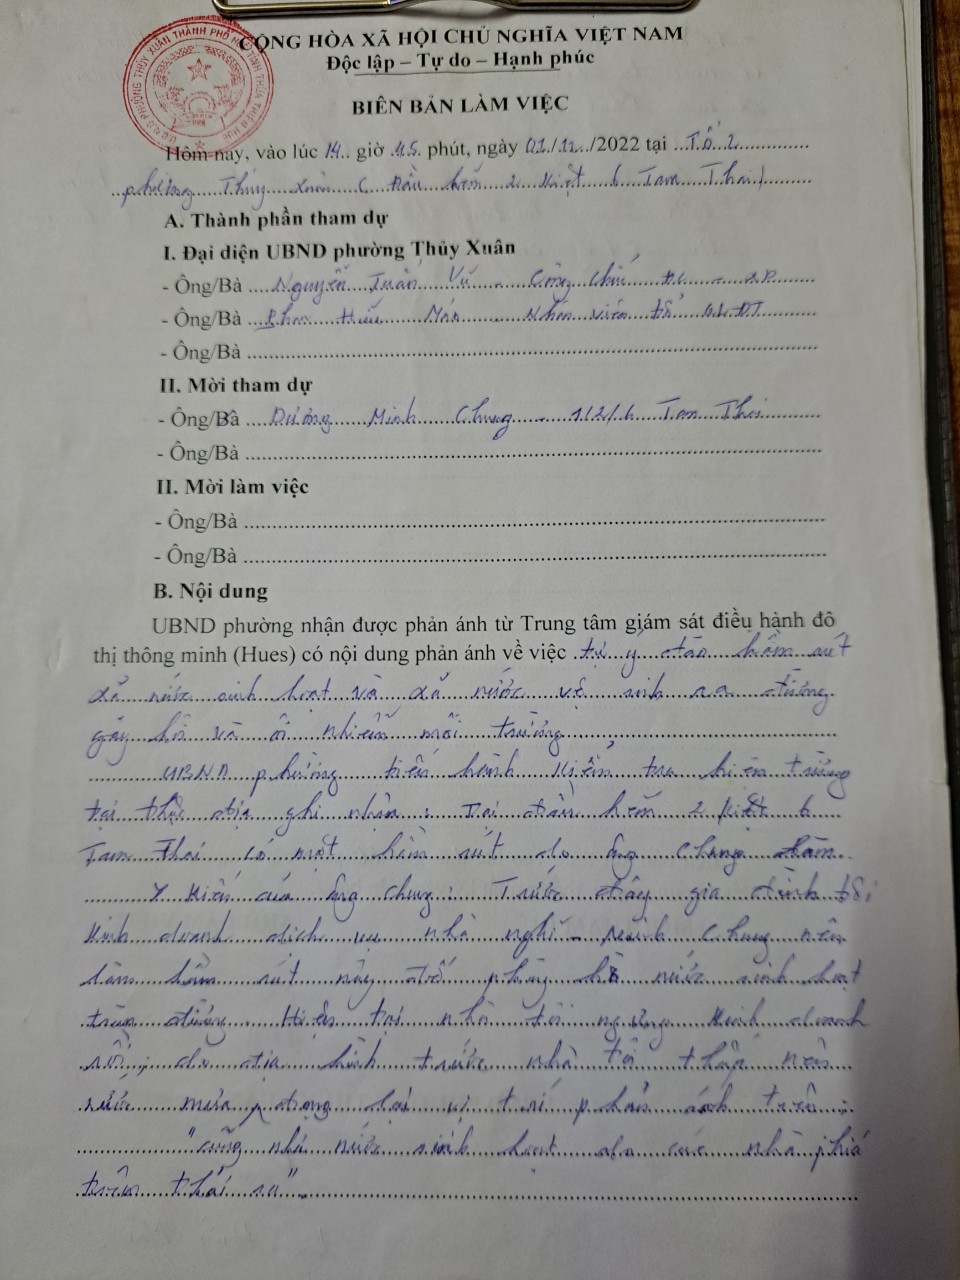 CỘNG HÒA XÃ HỘI CHỦ NGHĨA VIỆT NAM
Độc lập – Tự do – Hạnh phúc
BIÊN BẢN LÀM VIỆC
Hôm nay, vào lúc 14 giờ 45 phút, ngày 01/12/2022 tại Tổ 2
phường Thủy Xuân (Đầu hẻm 2 kiệt 6 Tam Thai)
A. Thành phần tham dự
I. Đại diện UBND phường Thủy Xuân
- Ông/Bà Nguyễn Tuấn Vũ - Công chức ĐC - XD
- Ông/Bà Phan Hiếu Nhân viên tổ QLĐT
- Ông/Bà
II. Mời tham dự
- Ông/Bà Dương Minh Chung - 1/2/6 Tam Thai
- Ông/Bà
II. Mời làm việc
- Ông/Bà
- Ông/Bà
B. Nội dung
UBND phường nhận được phản ánh từ Trung tâm giám sát điều hành đô
thị thông minh (Hues) có nội dung phản ánh về việc tự ý đào hầm rút
xả nước sinh hoạt và xả nước vệ sinh ra đường
gây hôi và ô nhiễm môi trường
UBND phường tiến hành kiểm tra hiện trường
tại thực địa ghi nhận: Tại đầu hẻm 2 kiệt 6
Tam Thai có một hầm rút do ông Chung làm.
Ý kiến của ông Chung: Trước đây gia đình tôi
kinh doanh dịch vụ nhà nghỉ Minh Chung nên
làm hầm rút này để phòng hờ nước sinh hoạt
tràn đường. Hiện tại nhà tôi ngưng kinh doanh
rồi, do địa hình trước nhà tôi thấp nên
nước mưa đọng lại vị trí phản ánh trên
"cũng như nước sinh hoạt do các nhà phía
trên thải ra"